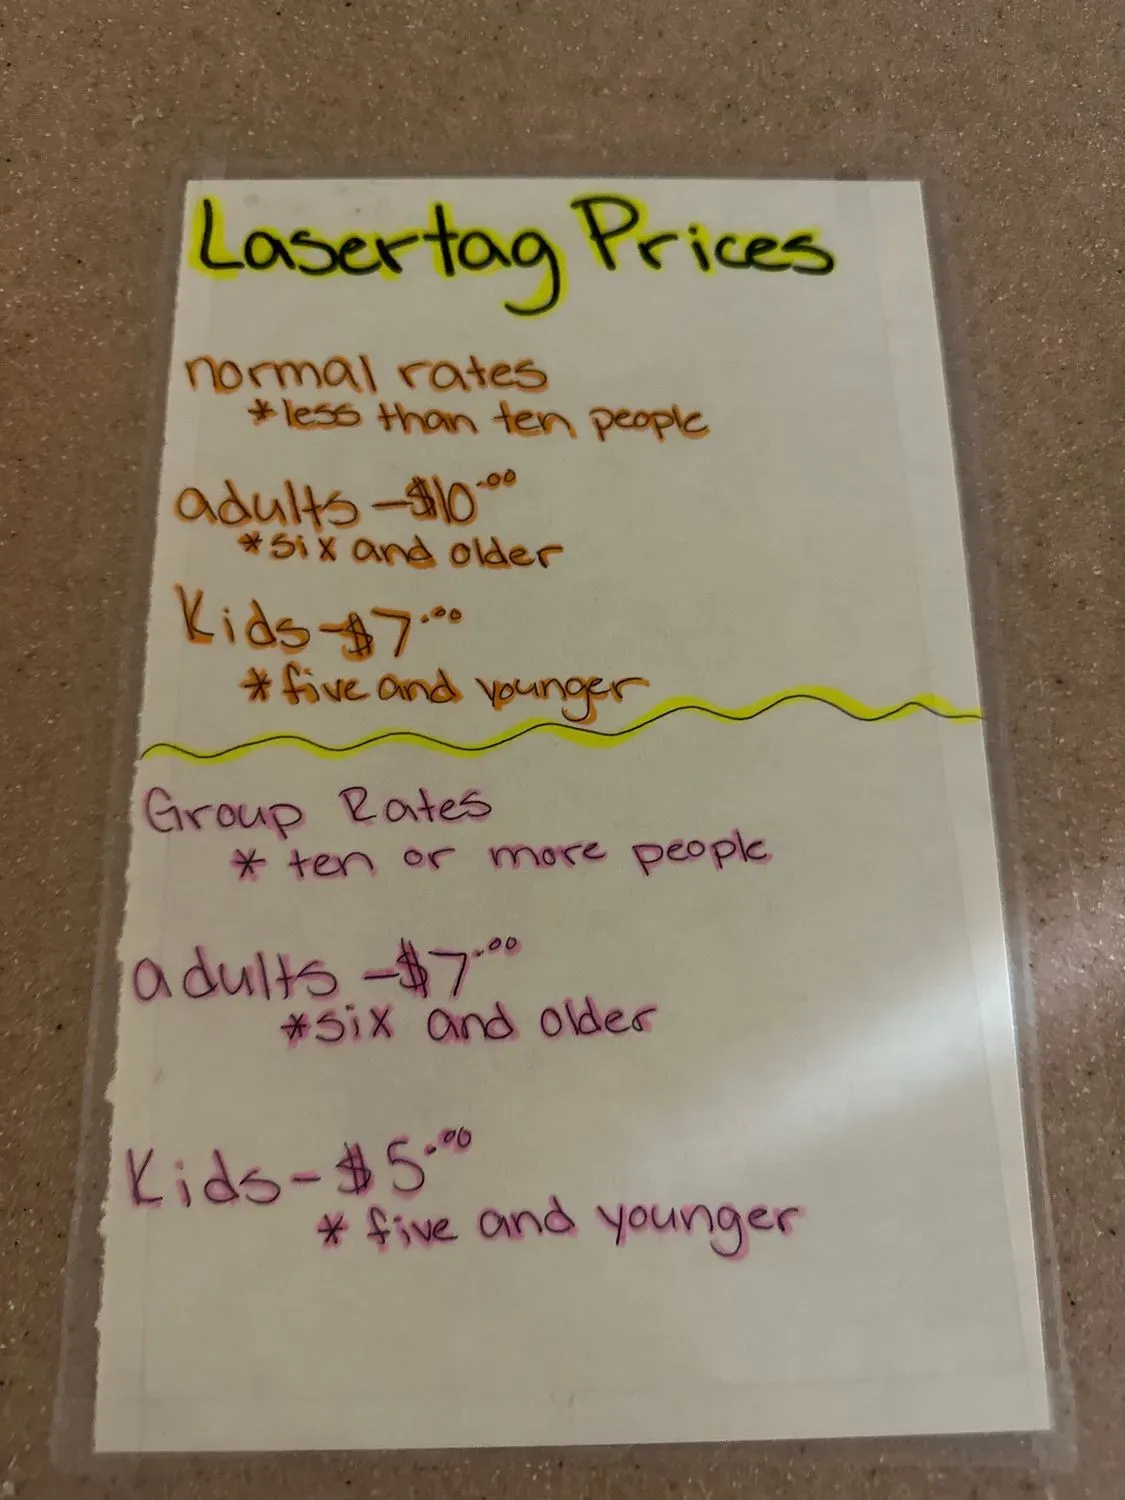 Lasertag Prices
normal rates
*less than ten people
adults -$10.00
*six and older
Kids-$7.00
*five and younger
Group Rates
* ten or more people
adults -$7.00
*six and older
Kids-$5.00
* five and younger